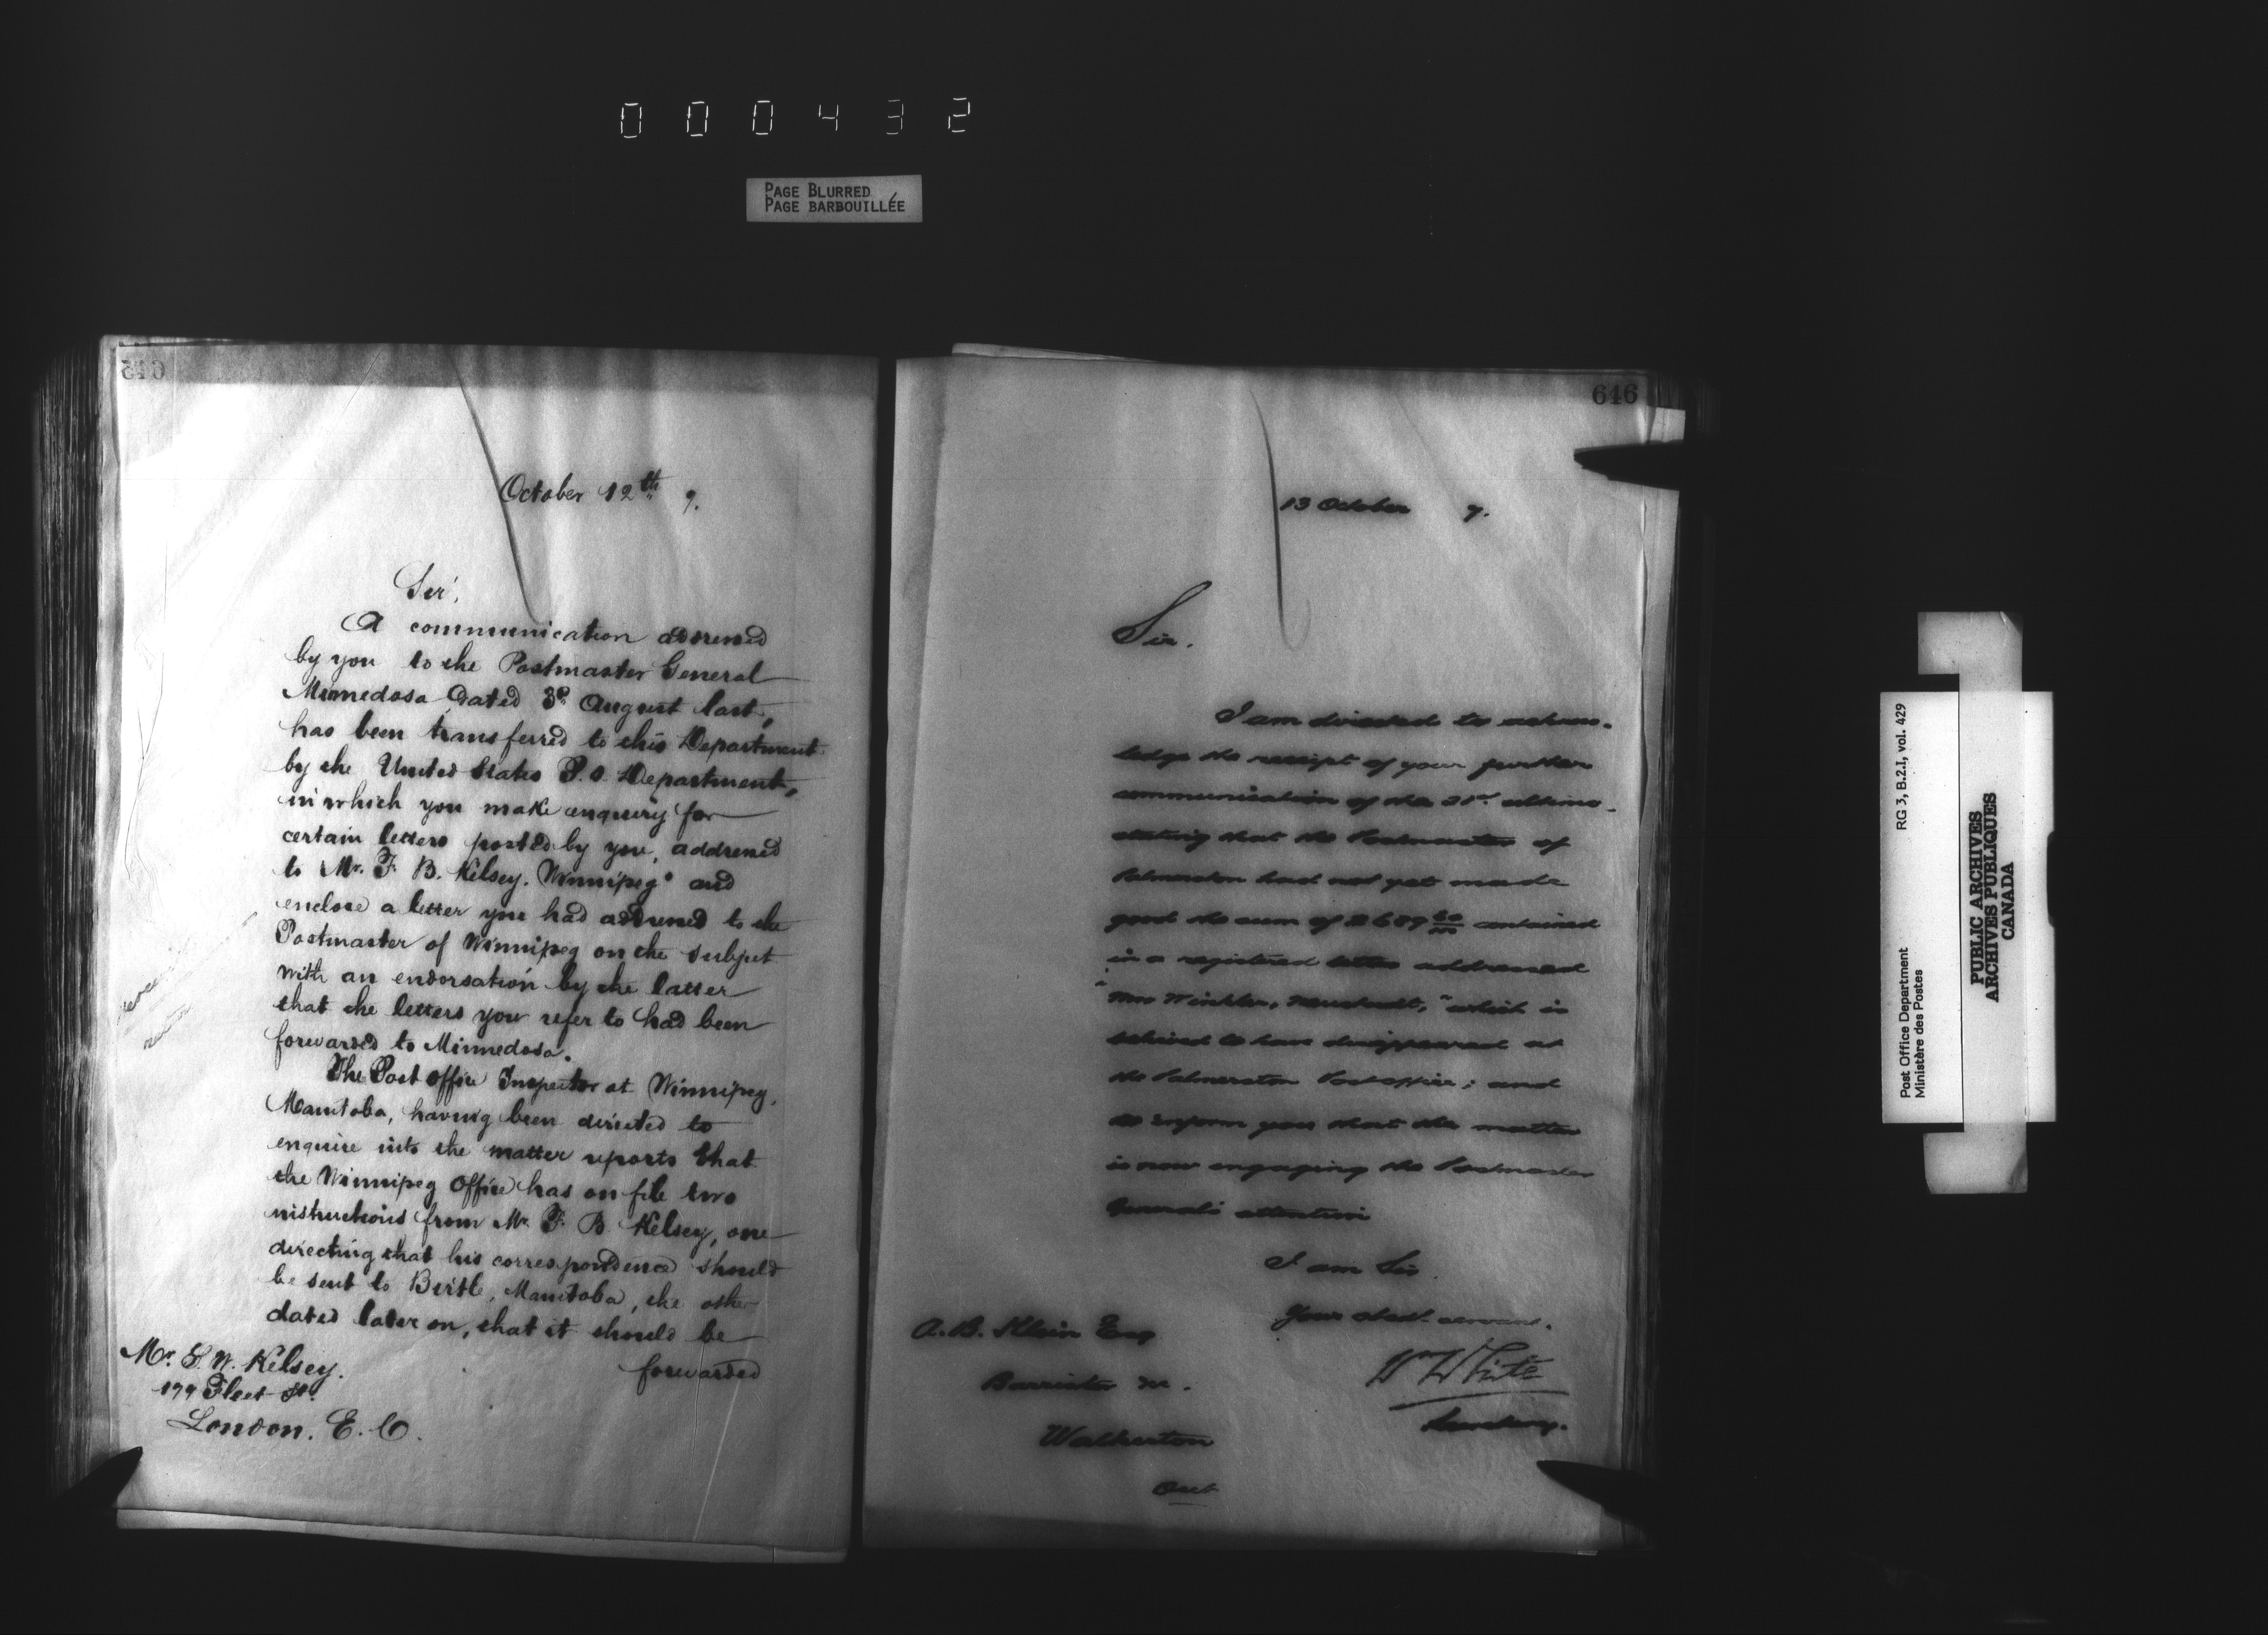 000432
PAGE BLURRED
PAGE BARBOUILLÉE
645
October 12th 7.
Sir,
A communication addressed
by you to the Postmaster General
Minnedosa dated 3d August last,
has been transferred to this Department
by the United States P.O. Department,
in which you make enquiry for
certain letters posted by you, addressed
to Mr. F. B. Kelsey. Winnipeg and
enclose a letter you had addressed to the
Postmaster of Winnipeg on the subject
with an endorsation by the latter
that the letters you refer to had been
forwarded to Minnedosa.
The Post Office Inspector at Winnipeg,
Manitoba, having been directed to
enquire into the matter reports that
the Winnipeg Office has on file two
instructions from Mr. F. B. Kelsey, one
directing that his correspondence should
be sent to Birtle, Manitoba, the other
dated later on, that it should be
forwarded
Mr. S. W. Kelsey.
179 Fleet St.
London. E. C.
646
13 October 7.
Sir.
I am directed to acknow-
ledge the receipt of your further
communication of the 21st. ultimo
stating that the Postmaster of
Palmerston had not yet made
good the sum of contained
in a registered letter addressed
"Mrs Winkler, Neustadt," which is
believed to have disappeared at
the Palmerston Post office; and
to inform you that the matter
is now engaging the Postmaster
General's attention
I am Sir
Your obedt. servant.
Wm White
Secretary.
A. B. Klein Esq
Barrister &c.
Walkerton
Ont
Post Office Department
Ministère des Postes
RG 3, B.2.I, vol. 429
PUBLIC ARCHIVES
ARCHIVES PUBLIQUES
CANADA